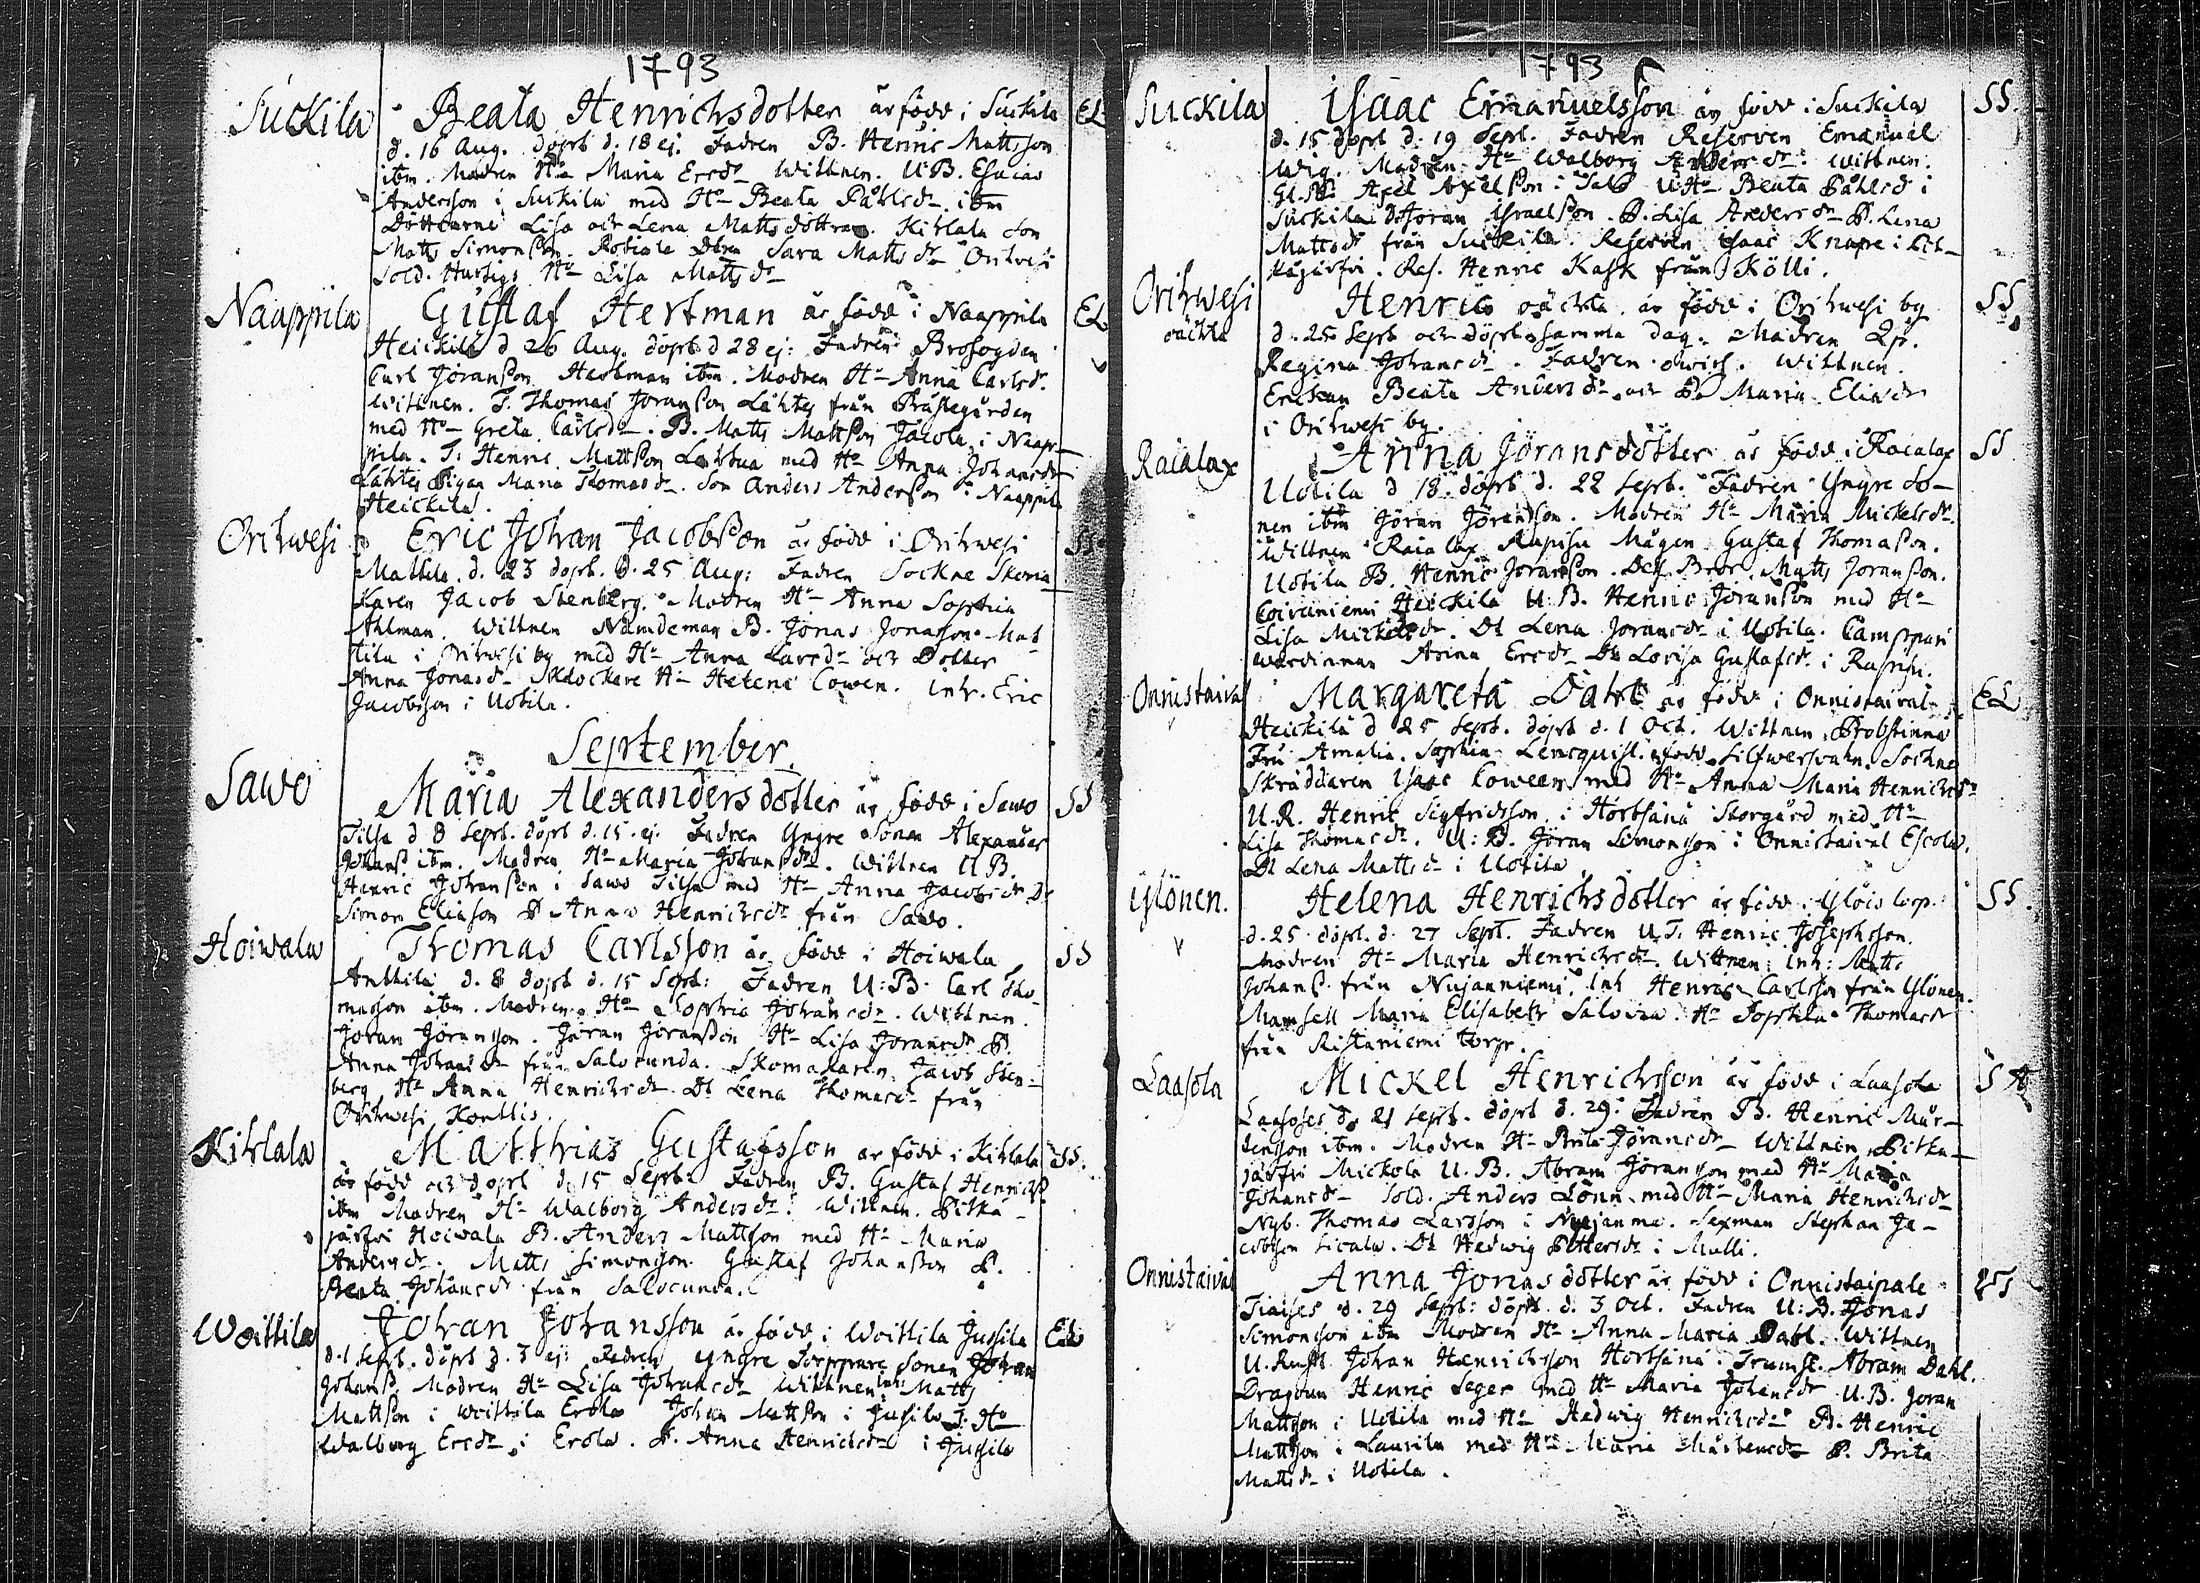 1793
Suckila Beata Henrichsdotter är född i Suckila EL
d. 16 Aug. döpt d. 18 ej. Fadren B. Henric Mattsson
ibm. Modren Ho Maria Ersdr Wittnen. U.B. Esaias
Andersson i Suckila med Ho Beata Påhlsdr ibm
Döttrarne Lisa och Lena Matts döttrar. Kihlala Son
Matts Simonsson Sara Mattsdr Orihvesi
Sold. Hurtigs Ho Lisa Mattsdr
Naappila Gustaf Hertman är född i Naappila EL
Heickilä d 26 Aug. döpt d 28 ej: Fadren Brofogden
Carl Jöransson Hertman ibm. Modren Ho Anna Carlsdr.
Wittnen. T. Thomas Joransson Lähtes från Prästegården
med Ho Greta Carlsdr. B. Matts Mattsson Jacola i Naap-
pila. T. Henric Mattsson med Ho Anna Johansdr
Lähtes Pigan Maria Thomasdr. Son Anders Andersson i Naappila
Heickilä.
Orihwesi Eric Johan Jacobsson är född i Orihwesi SS
Mattila. d. 23 döpt. d. 25 Aug: Fadren Sockne Skoma-
karen Jacob Stenberg. Modren Ho Anna Sophia
Ahlman. Wittnen Nämdeman B. Jonas Jonasson Mat
tila i Orihwesi by med Ho Anna Larsdr och Dotter
Anna Jonasdr Klockare Ho Helena Cowen. Inh. Eric
Jacobsson i Uotila.
September.
Sawo Maria Alexandersdotter är född i Sawo SS
Tilsa d 8 Sept. döpt d. 15. ej. Fadren Yngre Sonen Alexander
Johanss. ibm. Modren Ho Maria Johansdr. Wittnen U B.
Henric Johansson i Sawo Tilsa med Ho Anna Jacobsdr Dr
Simon Eliasson P Anna Henrichsdr från Sawo.
Hoiwala Thomas Carlsson är född i Hoiwala SS
Anttila d. 8 döpt d. 15 Sept: Fadren U:B. Carl Tho-
masson ibm. Modren Ho Sophia Johansdr. Wittnen.
Joran Jöransson. Jöran Jöransson Ho Lisa Joransdr P.
Anna Johansdr från Salocunda. Skomakaren Jacob Sten-
berg Ho Anna Henrichsdr Dt Lena Thomasdr från
Orihwesi Konttis.
Kihlala Matthias Gustafsson är född i Kihlala SS.
är född och döpt d. 15 Sept. Fadren B. Gustaf Henrichss
ibm Modren Ho Walborg Andersdr. Wittnen. Pitkä-
järfvi Hoiwala B. Anders Mattsson med Ho Maria
Andersdr. Matts Simonsson Gustaf Johansson P.
Beata Johansdr från Salocunda.
Woittila Johan Johansson är född i Woittila Jussila EL
d. 1 Sept. döpt d. 3 ej: Fadren yngre Torppare Sonen Johan
Johanss. Modren Ho Lisa Johansdr Wittnen Inh: Matts
Mattsson i Woittila Erola Johan Mattsson i Jussila J. Ho
Walborg Ersdr i Erola. P. Anna Henrichsdr i Jussila
1793
Suckila Isaac Emanuelsson är född i Suckila SS.
d. 15 döpt d. 19 Sept. Fadren Reserven Emanuel
Wig. Modren Ho Walborg Andersdr: Wittnen.
Axel Axelsson i Salo U:Ho Beata Påhlsdr i
Suckila Joran Israelsson. P. Lisa Andersdr P. Lena
Mattsdr från Suckila. Reserven Isaac Knape i Pit-
käjärfvi. Res. Henric Kask från Kölli.
Orihwesi Henric oächta är född i Orihwesi by SS
oächta d. 25 Sept och döpt samma dag. Modren Qp.
Regina Johansdr. Fadren owiss. Wittnen.
Enckan Beata Andersdr och P. Maria Eliædr
i Orihwesi by.
Raialax Anna Jöransdotter är född i Raialax SS
Uotila d 18. döpt d. 22 Sept. Fadren Yngre So-
nen ibm Jöran Jöransson. Modren Ho Maria Mickelsdr.
Wittnen Raialax Rupisu Mågen Gustaf Thomasson.
Uotila B. Henric Joransson. Dess Bror Matts Joransson.
Coivuniemi Heickila U:B. Henric Jöransson med Ho
Lisa Mickelsdr. Dt Lena Joransdr i Uotila. Camppari
wärdinnan Anna Ersdr Dt Lovisa Gustafsdr. i Rupisu.
Onnistaival Margareta Dahl är född i Onnistaival EL
Heickilä d 25 Sept. döpt d. 1 Oct. Wittnen Probstinna
Fru Amalia Sophia Lencquist född Silfwersvahn. Sockne
Skräddaren Isaac Coween med Ho Anna Maria Henrichsdr
U.R. Henric Sigfridsson i Hortsänä Storgård med Ho
Lisa Thomasdr. U: B. Jöran Simonsson i Onnistaival Escola.
Dt Lena Mattsdr i Uotila.
Ylönen. Helena Henrichsdotter är född i Ylöis torp: SS.
d. 25 döpt. d. 27 Sept. Fadren U.T. Henric Josephsson.
Modren Ho Maria Henrichsdr. Wittnen: Inh: Matts
Johanss. från Nujanniemi. Inh Henric Carlsson från Ylönen.
Mamsell Maria Elisabeth Salovia. Ho Sophia Thomasdr
från Ristaniemi torpr.
Laasola Mickel Henrichsson är född i Laasola SA
Laasoses d. 21 Sept. döpt d. 29: Fadren B. Henric Mår-
tensson ibm. Modren Ho Brita Jöransdr Wittnen Pitka-
järfvi Mickola U. B. Abram Jöransson med Ho Maria
Johansdr Sold. Anders Lönn med Ho Maria Henrichsdr
Nyb. Thomas Larsson i Nyjanma. Sexman Stephan Ja-
cobsson Sicala. Dt Hedwig Pettersdr i Mulli.
Onnistaival Anna Jonasdotter är född i Onnistaipale
Tiaises d. 29 Sept: döpt. d. 3 Oct. Fadren U:B. Jonas
Simonsson ibm Modren Ho Anna Maria Dahl. Wittnen
U. Rusth Johan Henrichsson Hortsänä. Trumsl. Abram Dahl.
Dragoun Henric Seger med Ho Maria Johansdr U.B. Joran
Mattsson i Uotila med Ho Hedwig Henrichsdr B. Henric
Mattsson i Laurila med Ho Maria Mårtensdr P. Brita
Mattsdr i Uotila.